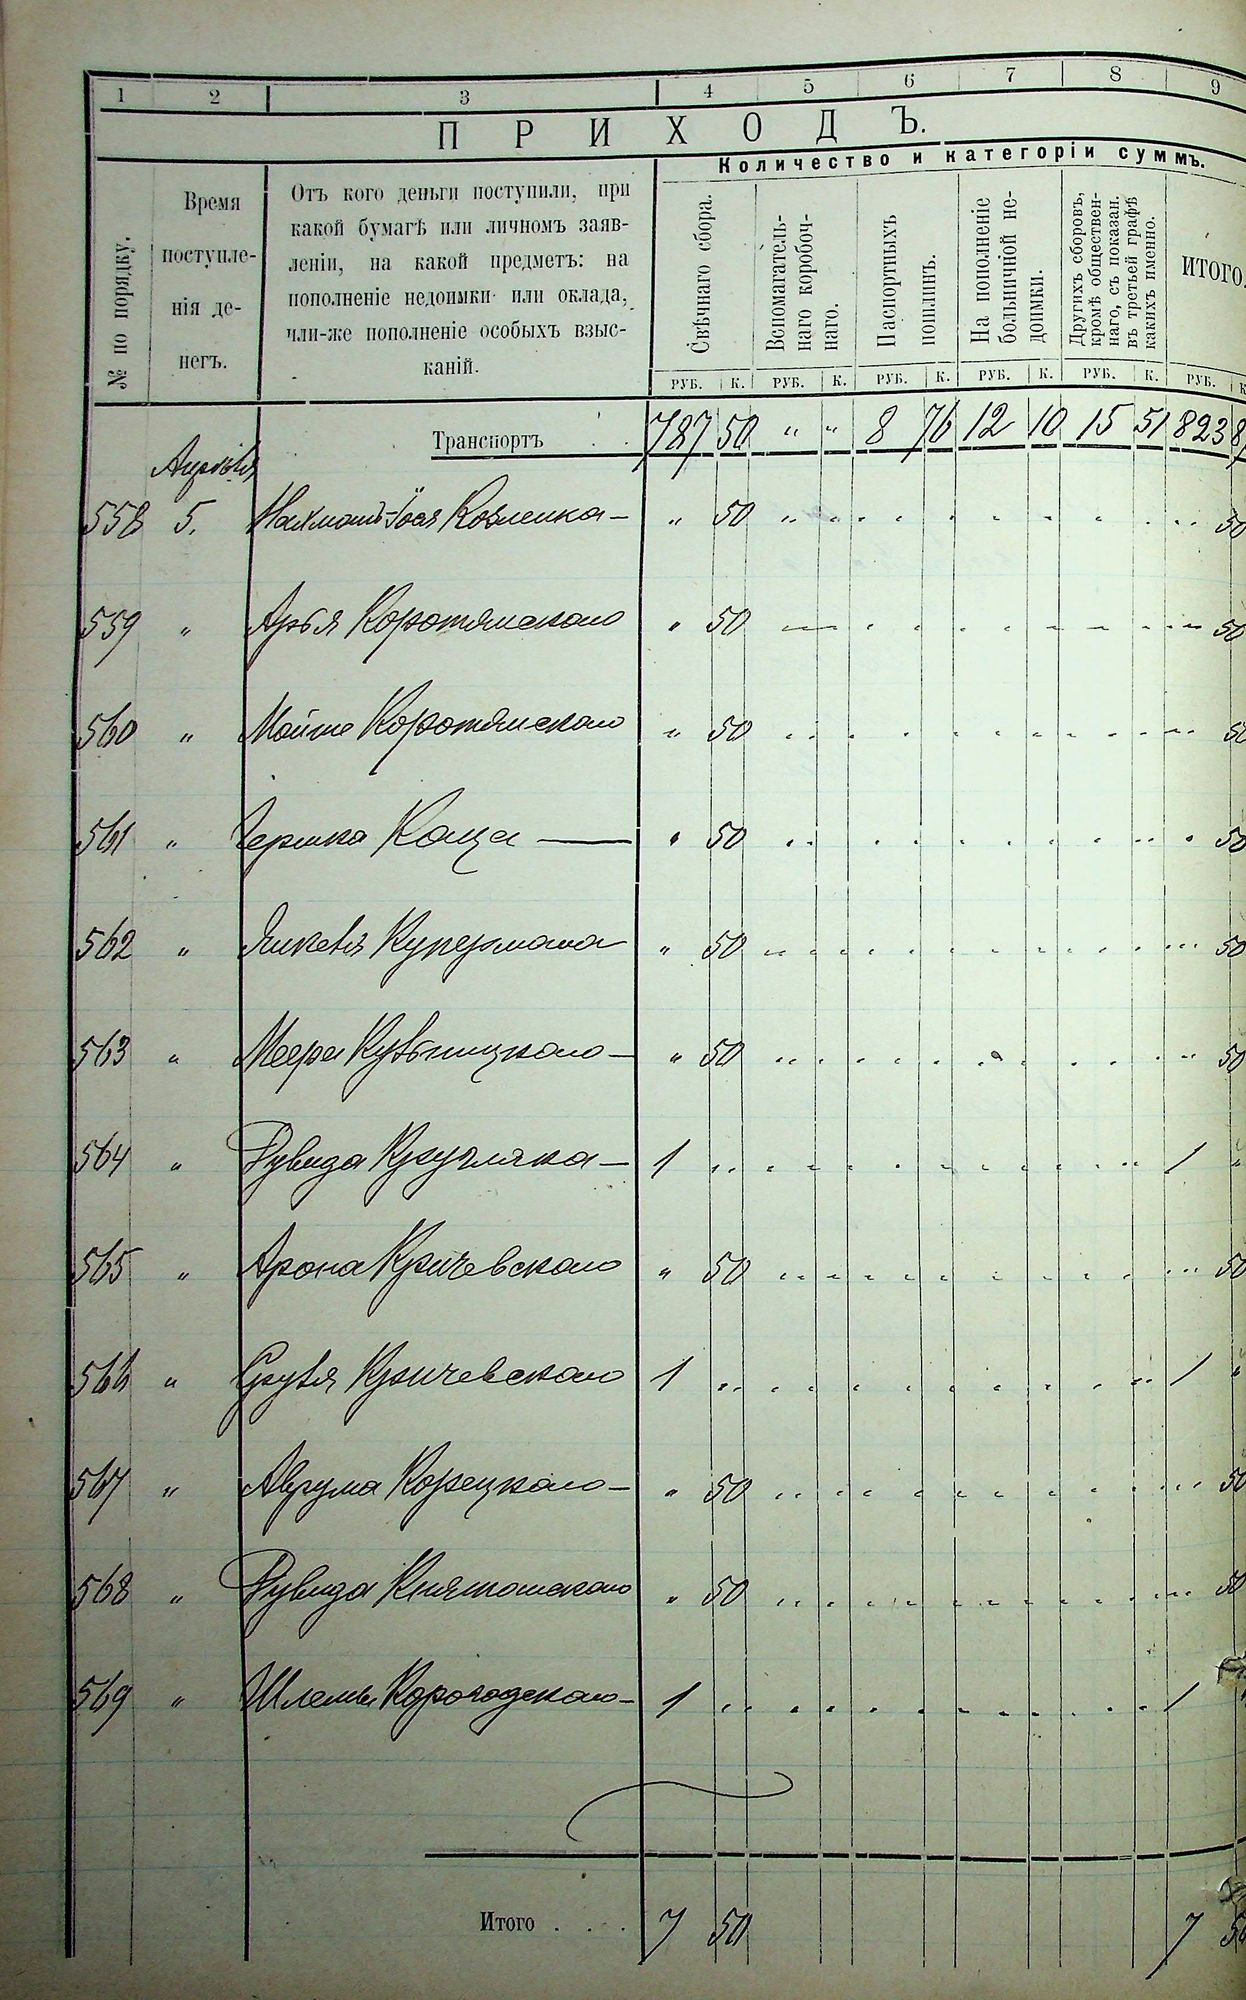 1 2 3 4 5 6 7 8 9
ПРИХОДЪ.
Количество и категоріи суммъ.
№ по порядку.
Время
поступле-
нія де-
негъ.
Отъ кого деньги поступили, при
какой бумагѣ или личномъ заяв-
леніи, на какой предметъ: на
пополненіе недоимки или оклада,
или-же пополненіе особыхъ взыс-
каній.
Свѣчнаго сбора.
Вспомагатель-
наго коробоч-
наго.
Паспортныхъ
пошлинъ.
На пополненіе
больничной не-
доимки.
Другихъ сборовъ,
кромѣ обществен-
наго, съ показан.
въ третьей графѣ
какихъ именно.
ИТОГО.
РУБ. К. РУБ. К. РУБ. К. РУБ. К. РУБ. К. РУБ. К
Транспортъ . . 787 50 " " 8 76 12 10 15 51 823 8
Апрѣля
558 5. Нахманъ-Іося Козленка — " 50 50
559 " Арья Коротянскаго " 50 50
560 " Мойше Коротянскаго " 50 50
561 " Гершка Каца — " 50 50
562 " Янкеля Купермана " 50 50
563 " Меера Кубъницкаго — " 50 50
564 " Дувида Кругляка — 1 " 1 "
565 " Арона Кричевскаго " 50 50
566 " Сруля Кричевскаго 1 " 1 "
567 " Аврума Корецкаго — " 50 50
568 " Дувида Княжанскаго " 50 50
569 " Шлемы Корогодскаго — 1 " 1
Итого . . . 7 50 7 50